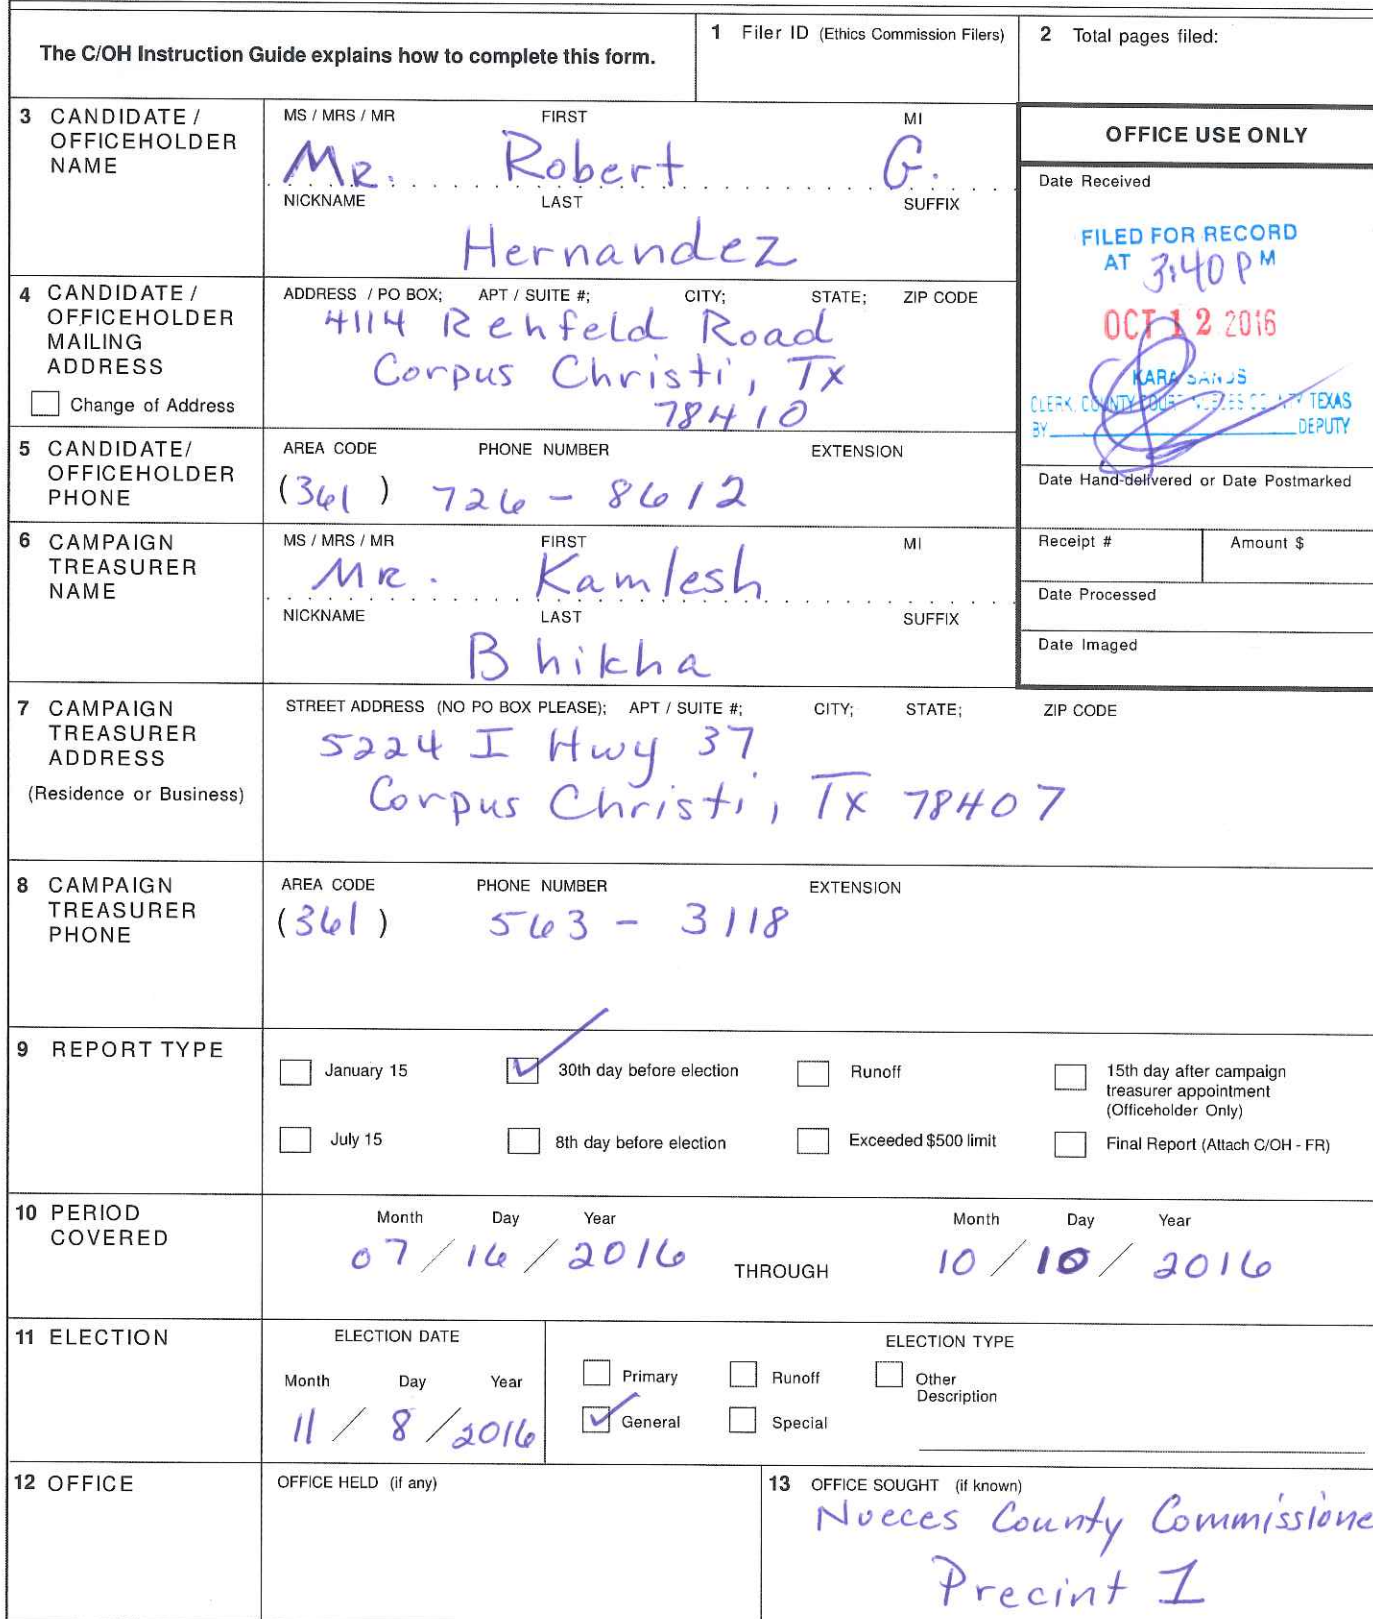 The C/OH Instruction Guide explains how to complete this form.
1 Filer ID (Ethics Commission Filers)
2 Total pages filed:
3 CANDIDATE /
OFFICEHOLDER
NAME
MS / MRS / MR FIRST MI
Mr. Robert G.
NICKNAME LAST SUFFIX
Hernandez
OFFICE USE ONLY
Date Received
FILED FOR RECORD
AT 3:40 P M
OCT 12 2016
KARA SANDS
CLERK, COUNTY COURT NUECES COUNTY TEXAS
BY DEPUTY
Date Hand-delivered or Date Postmarked
Receipt # Amount $
Date Processed
Date Imaged
4 CANDIDATE /
OFFICEHOLDER
MAILING
ADDRESS
Change of Address
ADDRESS / PO BOX; APT / SUITE #; CITY; STATE; ZIP CODE
4114 Rehfeld Road
Corpus Christi, Tx
78410
5 CANDIDATE/
OFFICEHOLDER
PHONE
AREA CODE PHONE NUMBER EXTENSION
(361) 726-8612
6 CAMPAIGN
TREASURER
NAME
MS / MRS / MR FIRST MI
Mr. Kamlesh
NICKNAME LAST SUFFIX
Bhikha
7 CAMPAIGN
TREASURER
ADDRESS
(Residence or Business)
STREET ADDRESS (NO PO BOX PLEASE); APT / SUITE #; CITY; STATE; ZIP CODE
5224 I Hwy 37
Corpus Christi, Tx 78407
8 CAMPAIGN
TREASURER
PHONE
AREA CODE PHONE NUMBER EXTENSION
(361) 563-3118
9 REPORT TYPE
January 15 30th day before election Runoff 15th day after campaign
treasurer appointment
(Officeholder Only)
July 15 8th day before election Exceeded $500 limit Final Report (Attach C/OH - FR)
10 PERIOD
COVERED
Month Day Year Month Day Year
07/16/2016 THROUGH 10/10/2016
11 ELECTION
ELECTION DATE
Month Day Year
11/8/2016
ELECTION TYPE
Primary Runoff Other
Description
General Special
12 OFFICE
OFFICE HELD (if any)
13 OFFICE SOUGHT (if known)
Nueces County Commissione
Precint 1